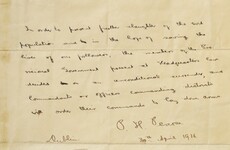 In order to prevent further slaughter of the
population and in the hope of saving the
lives of our followers, the members of the Pro-
visional Government present at Headquarters have
decided on an unconditional surrender, and
Commandants or officers commanding districts
will order their commands to lay down arms.
P H Pearse
Dublin
30th April 1916